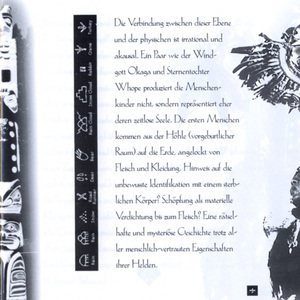 Die Verbindung zwischen dieser Ebene
und der physischen ist irrational und
akausal. Ein Paar wie der Wind-
gott Okaga und Sternentochter
Whope produziert die Menschen-
kinder nicht, sondern repräsentiert eher
deren zeitlose Seele. Die ersten Menschen
kommen aus der Höhle (vorgeburtlicher
Raum) auf die Erde, angelockt von
Fleisch und Kleidung. Hinweis auf die
unbewusste Identifikation mit einem sterb-
lichen Körper? Schöpfung als materielle
Verdichtung bis zum Fleisch? Eine rätsel-
hafte und mysteriöse Geschichte trotz al-
ler menschlich-vertrauten Eigenschaften
ihrer Helden.
Turkey
Crane
Rabbit
Rain Cloud
Bear
Deer
Rain